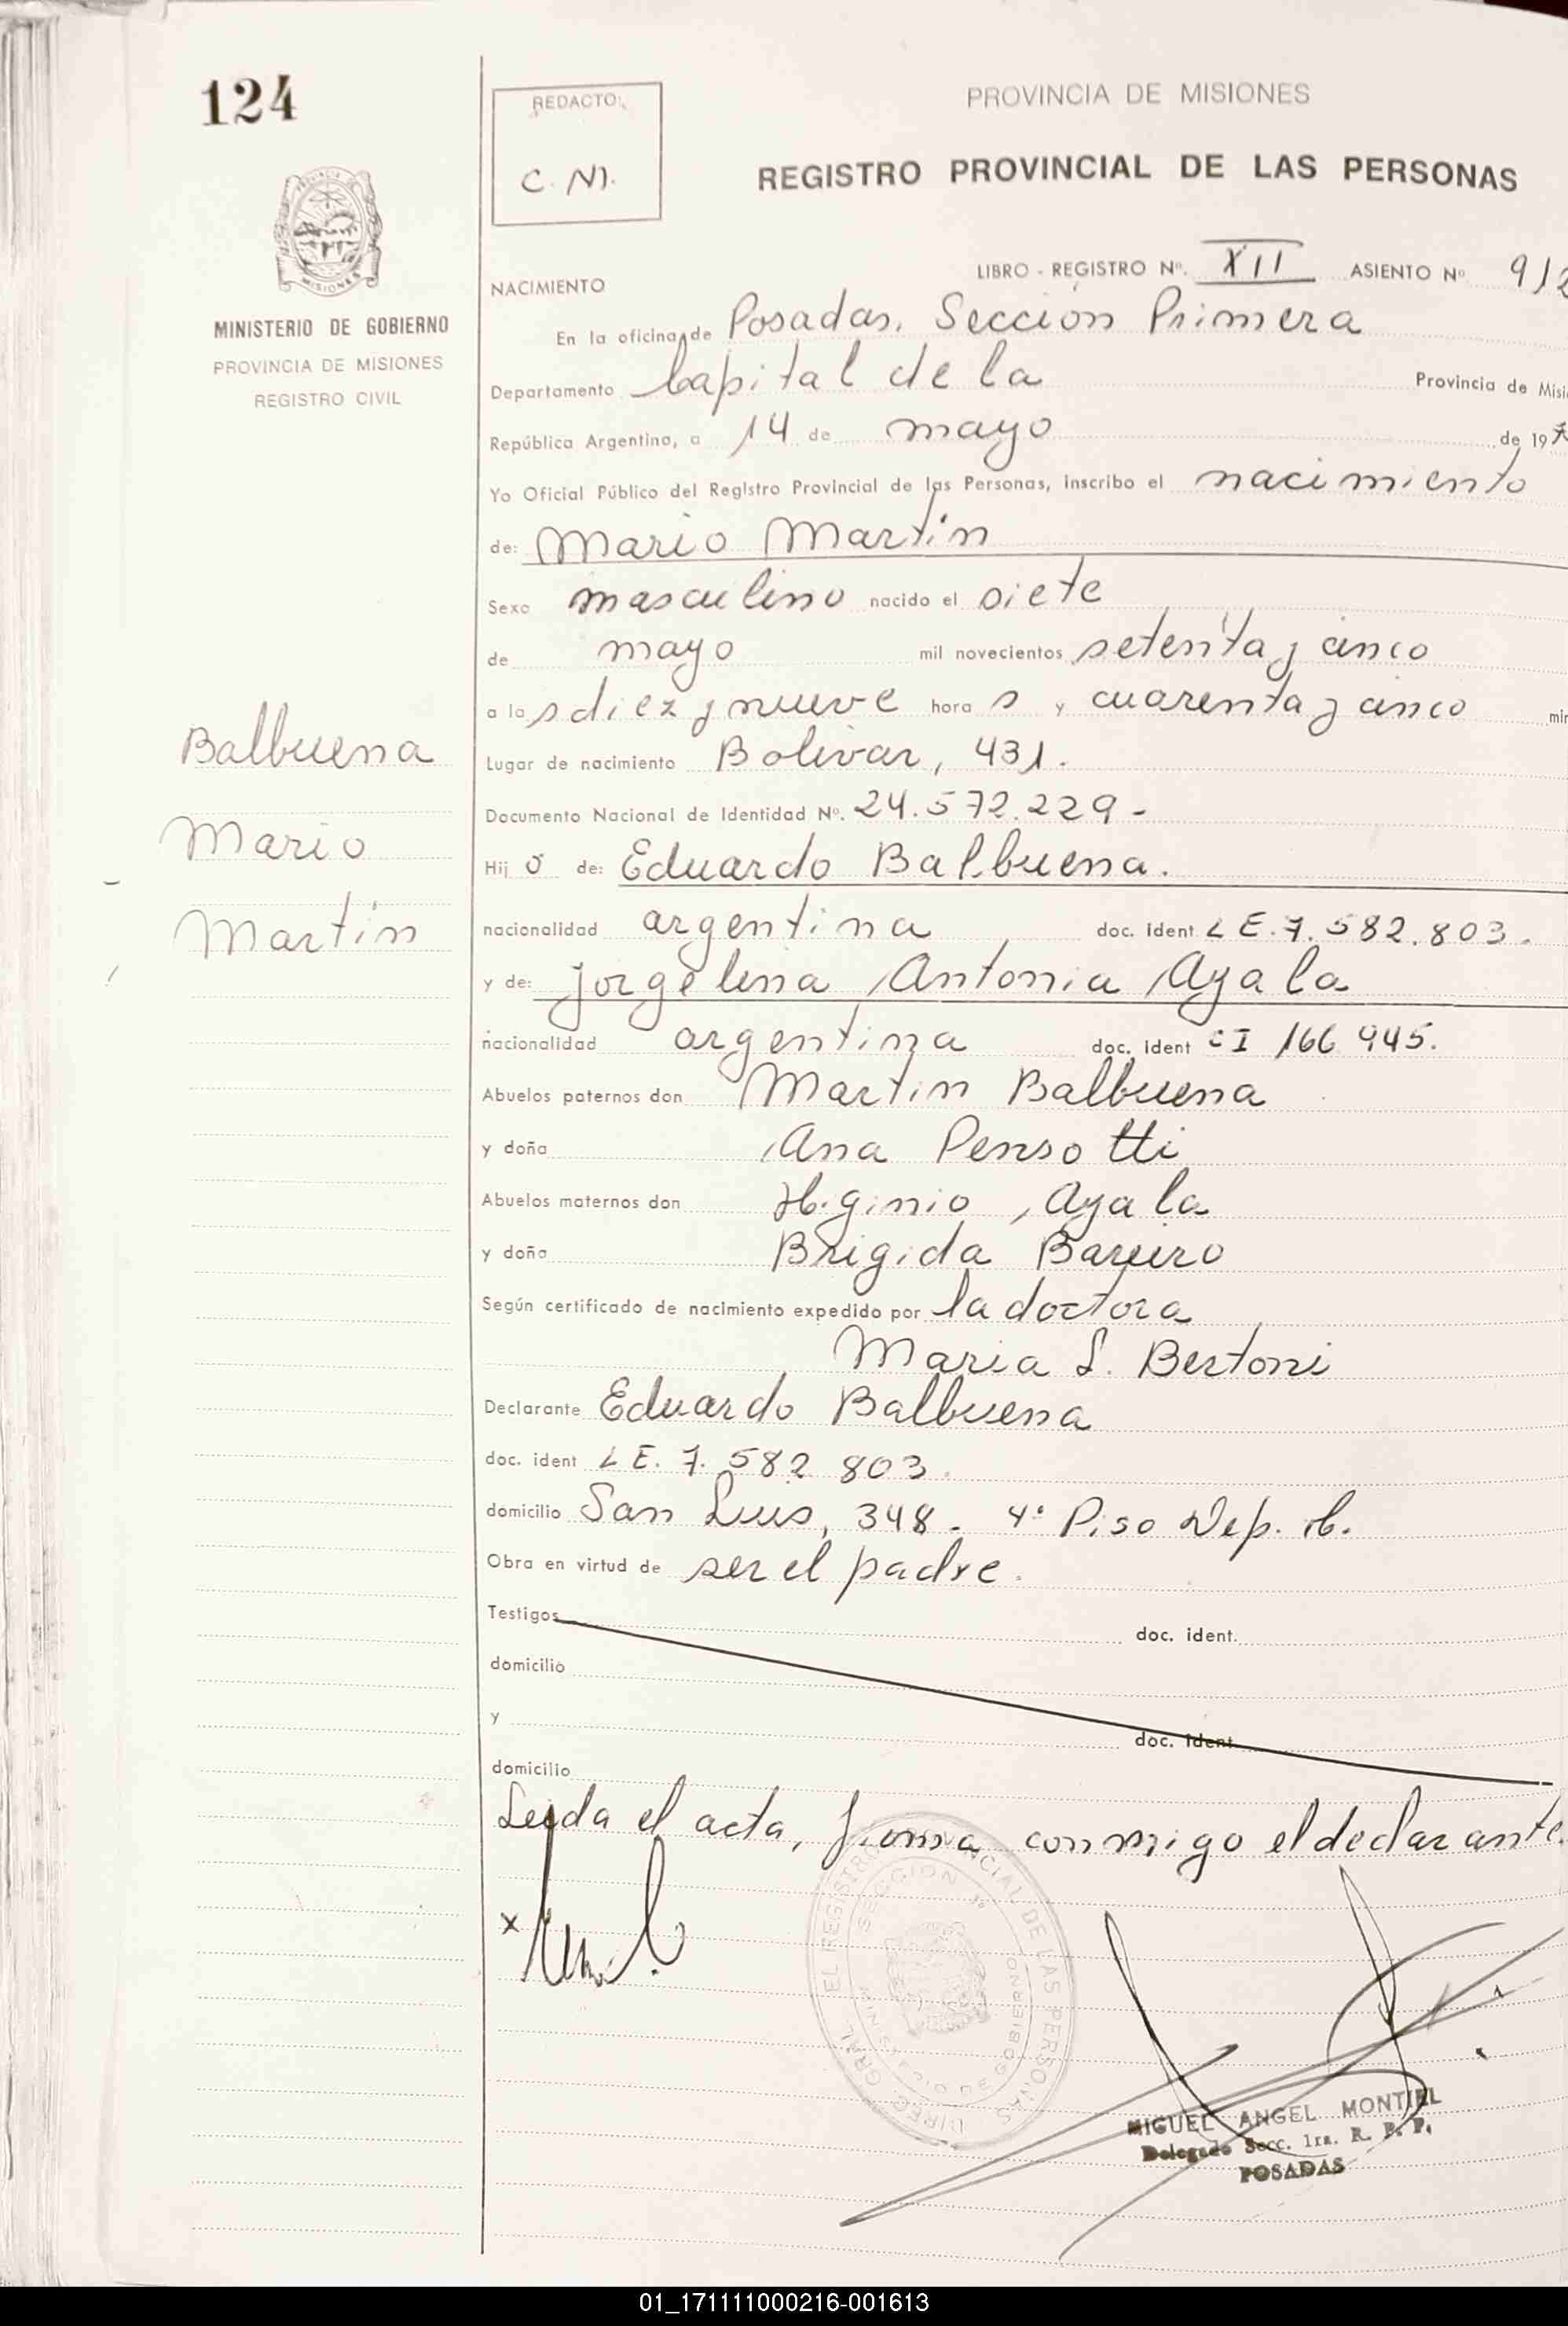 124
REDACTO:
C. M.
PROVINCIA DE MISIONES
REGISTRO PROVINCIAL DE LAS PERSONAS
MISIONES
MINISTERIO DE GOBIERNO
PROVINCIA DE MISIONES
REGISTRO CIVIL
LIBRO - REGISTRO Nº. XII ASIENTO Nº 912
NACIMIENTO
En la oficina de Posadas, Sección Primera
Departamento Capital de la Provincia de Misi
República Argentina, a 14 de mayo de 197
Yo Oficial Público del Registro Provincial de las Personas, inscribo el nacimiento
de: Mario Martín
Sexo masculino nacido el siete
de mayo mil novecientos setenta y cinco
a las diez y nueve hora s y cuarenta y cinco min
Lugar de nacimiento Bolivar, 431.
Documento Nacional de Identidad Nº. 24.572.229-
Hij o de: Eduardo Balbuena.
nacionalidad argentina doc. ident LE. 7.582.803.
y de: Jorgelina Antonia Ayala
nacionalidad argentina doc. ident CI 166 945.
Abuelos paternos don Martin Balbuena
y doña Ana Pensotti
Abuelos maternos don Higinio Ayala
y doña Brigida Bareiro
Según certificado de nacimiento expedido por la doctora
Maria L. Bertoni
Declarante Eduardo Balbuena
doc. ident LE. 7. 582 803.
domicilio San Luis, 348. 4º Piso Dep.
Obra en virtud de ser el padre.
Testigos doc. ident.
domicilio
y doc. ident
domicilio
Leida el acta, firma conmigo el declarante.
Balbuena
Mario
Martín
x
DIREC. GRAL. EL REGISTRO PROVINCIAL DE LAS PERSONAS
SECCION
MINISTERIO DE GOBIERNO
MIGUEL ANGEL MONTIEL
Delegado Secc. 1ra. R. P. P.
POSADAS
01_171111000216-001613